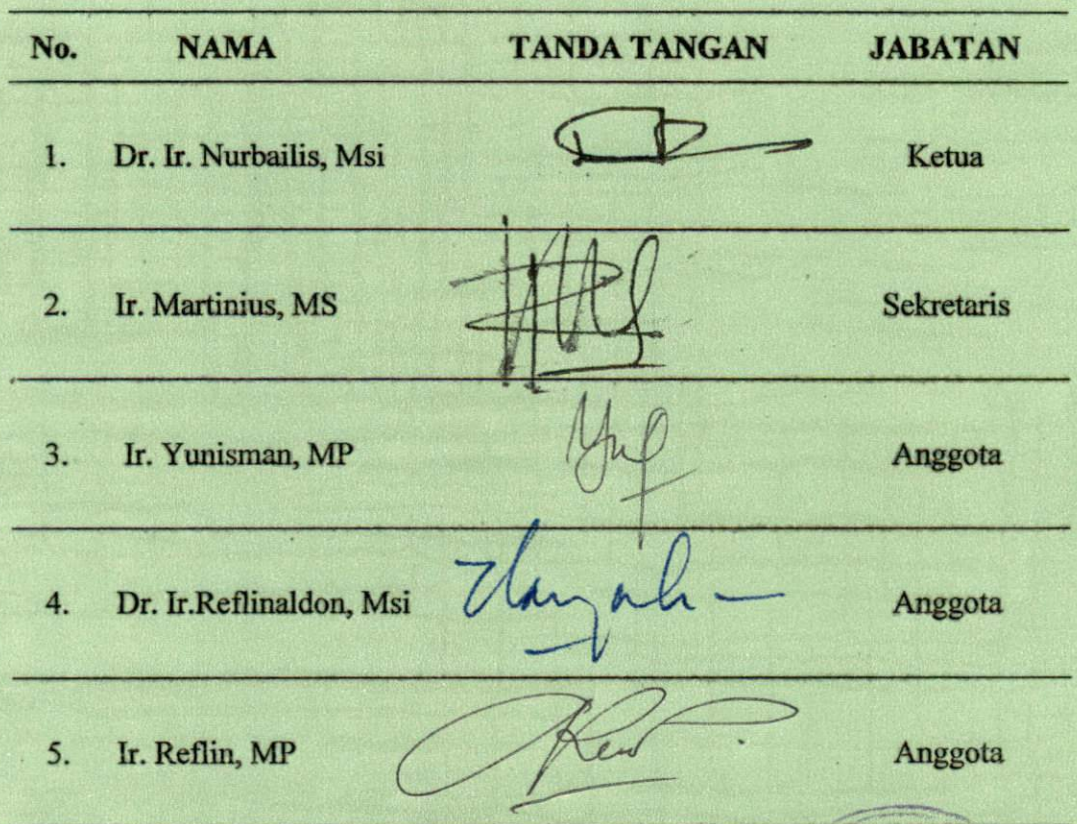 No. NAMA TANDA TANGAN JABATAN
1. Dr. Ir. Nurbailis, Msi Ketua
2. Ir. Martinius, MS Sekretaris
3. Ir. Yunisman, MP Anggota
4. Dr. Ir.Reflinaldon, Msi Anggota
5. Ir. Reflin, MP Anggota